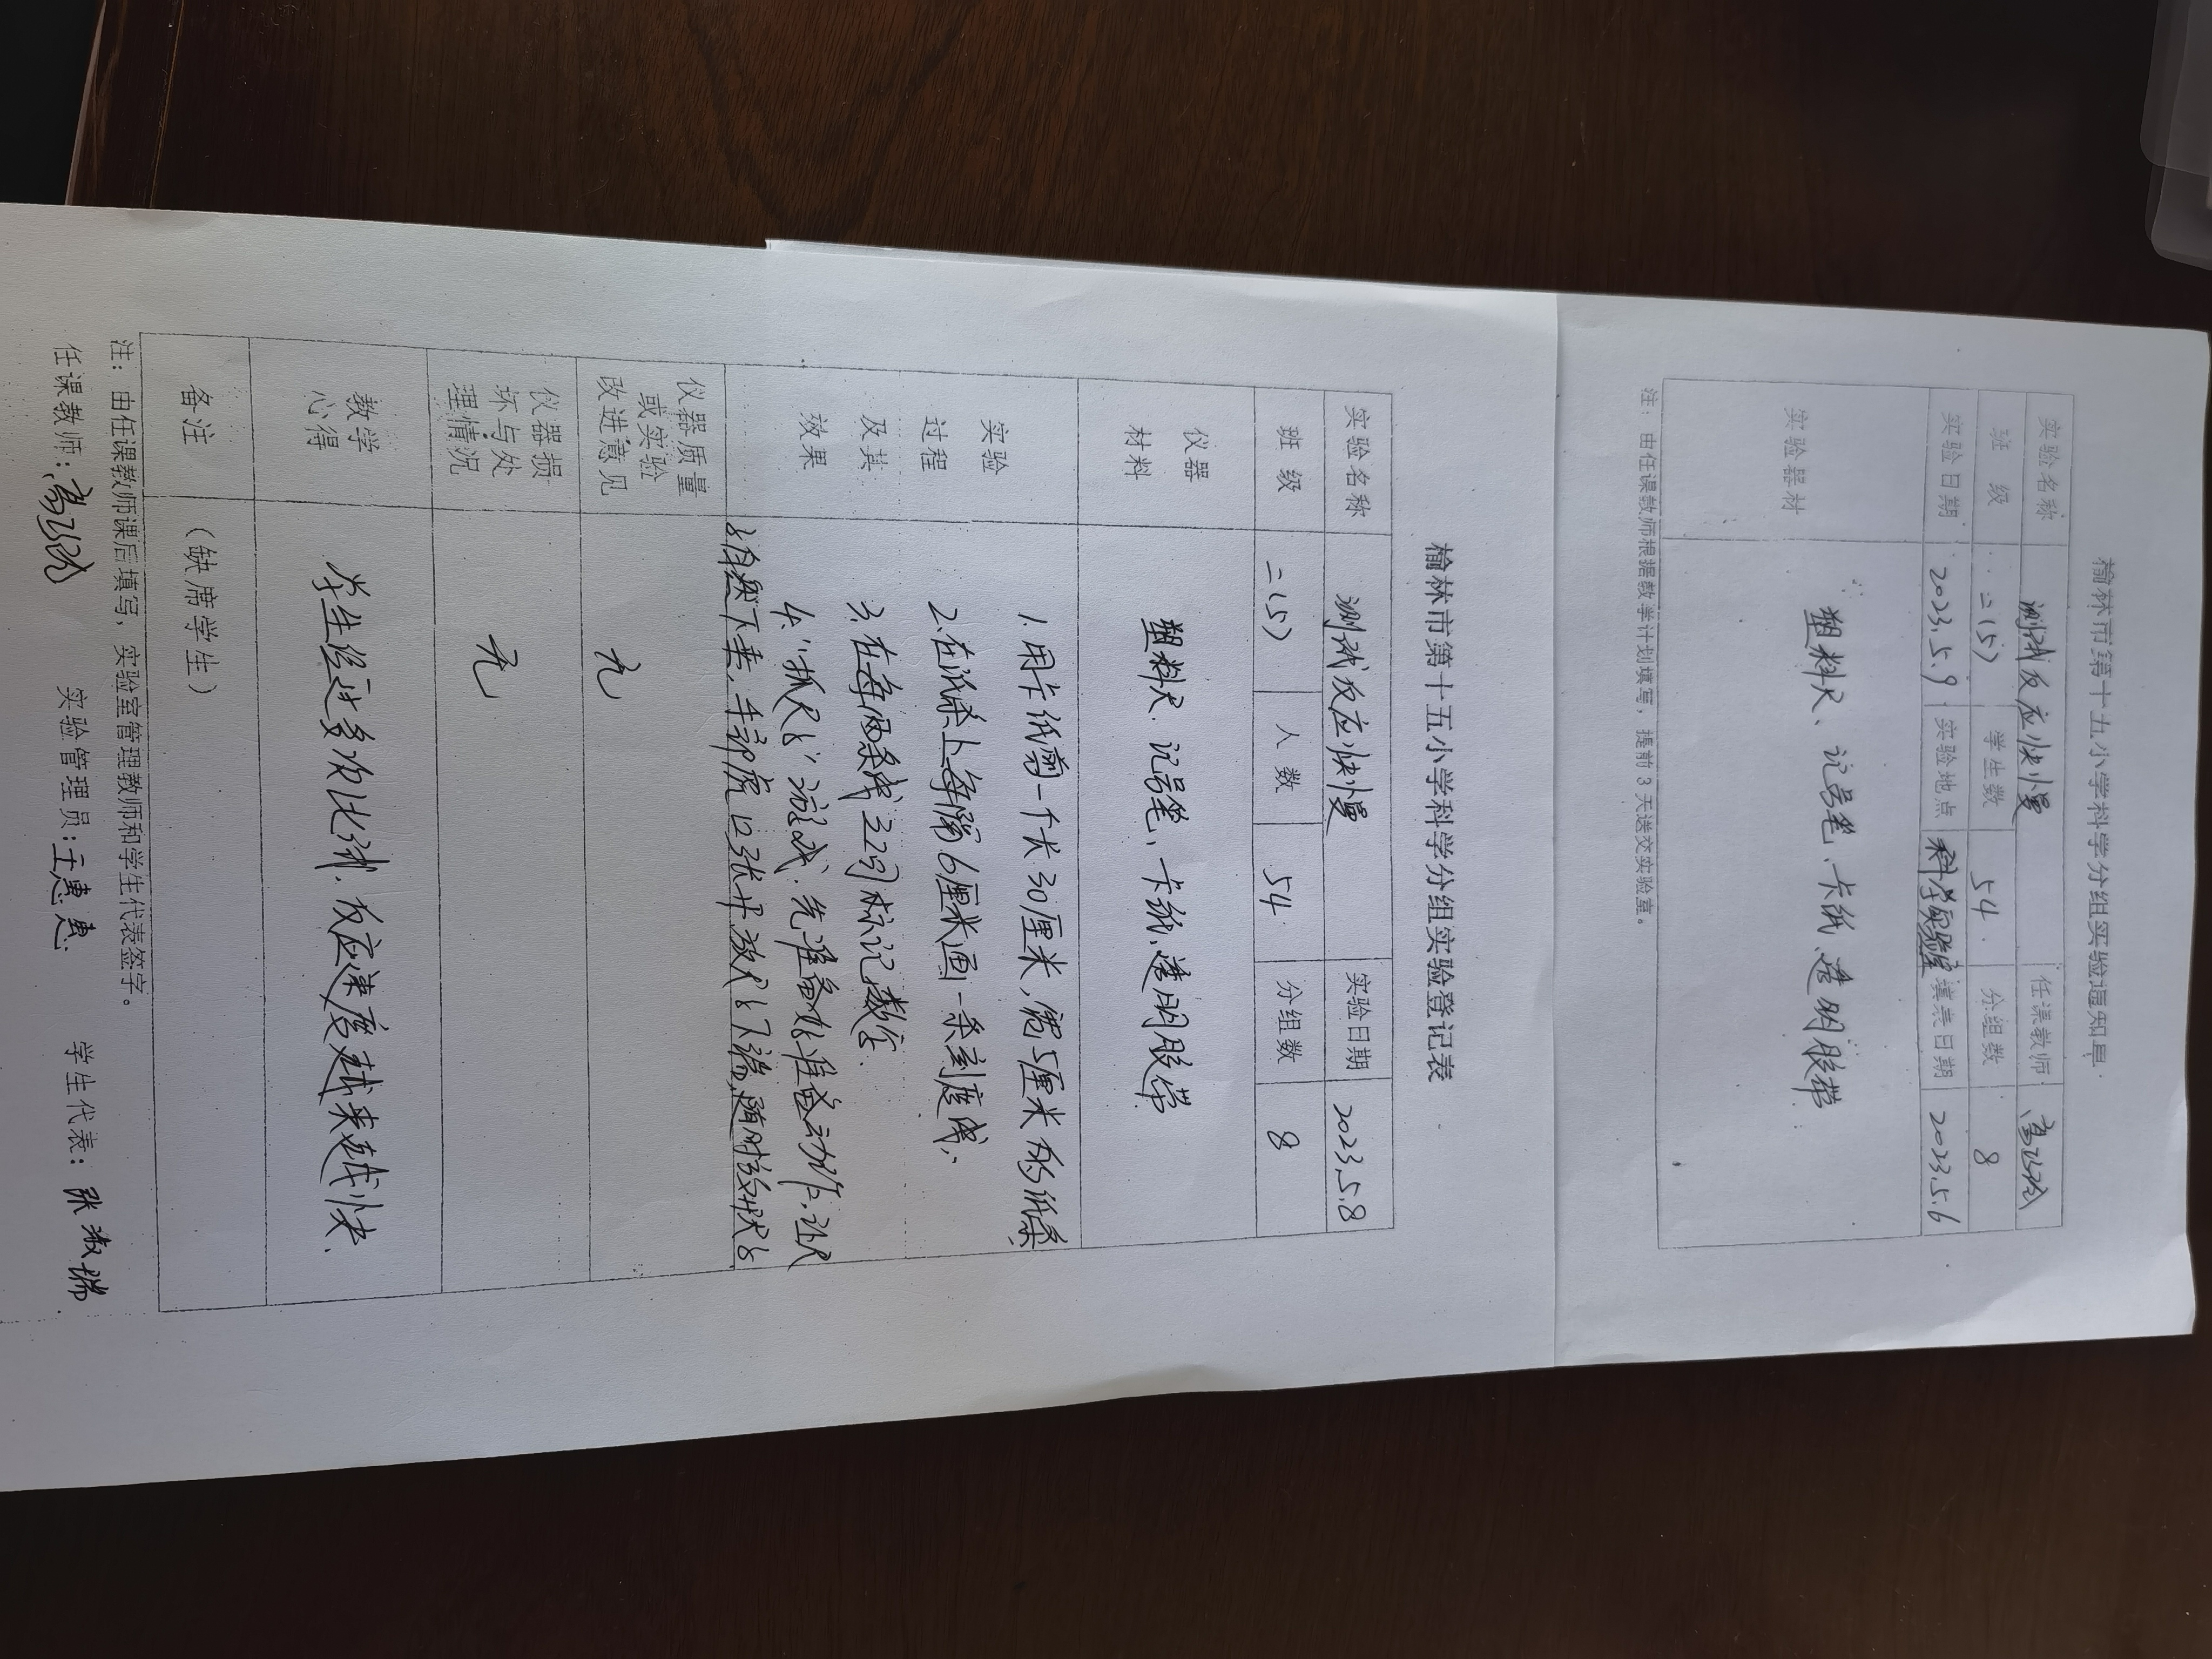 榆林市第十五小学科学分组实验通知单
实验名称 测试反应快慢 任课教师
班 级 二(5) 学生数 54 分组数 8
实验日期 2023.5.9 实验地点 科学实验室 填表日期 2023.5.6
实验器材 塑料尺、记号笔、卡纸、透明胶带
注：由任课教师根据教学计划填写，提前 3 天送交实验室。
榆林市第十五小学科学分组实验登记表
实验名称 测试反应快慢 实验日期 2023.5.8
班 级 二(5) 人 数 54 分组数 8
仪器
材料
塑料尺、记号笔、卡纸、透明胶带
实验
过程
及其
效果
1.用卡纸剪一个长30厘米,宽5厘米的纸条
2.在纸条上每隔6厘米画一条刻度线、
3.在每两条线之间标记数字.
4."抓尺子"游戏.先准备好准备动作.让尺
子自然下垂,手部虎口张开.放尺子下端,随时放状子
仪器质量
或实验
改进意见
仪器损
坏与处
理情况
无
教学
心得
学生经过多次比测、反应速度越来越快、
备注
（缺席学生）
注：由任课教师课后填写，实验室管理教师和学生代表签字。
任课教师： 实验管理员：王惠惠 学生代表：张淑瑞